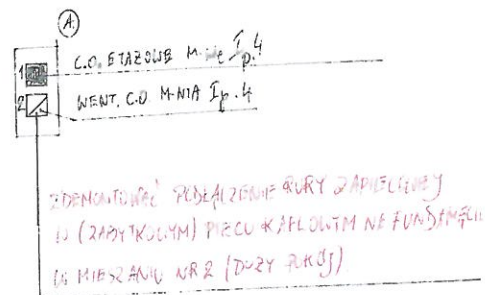 A
1 C.O. ETAŻOWE M-nie I p.4
2 WENT. C.O M-NIA I p.4
ZDEMONTOWAĆ PODŁĄCZENIE RURY ZAPIECKOWEJ
W (ZABYTKOWYM) PIECU KAFLOWYM NA FUNDAMENCIE
W MIESZKANIU NR 2 (DUŻY POKÓJ)